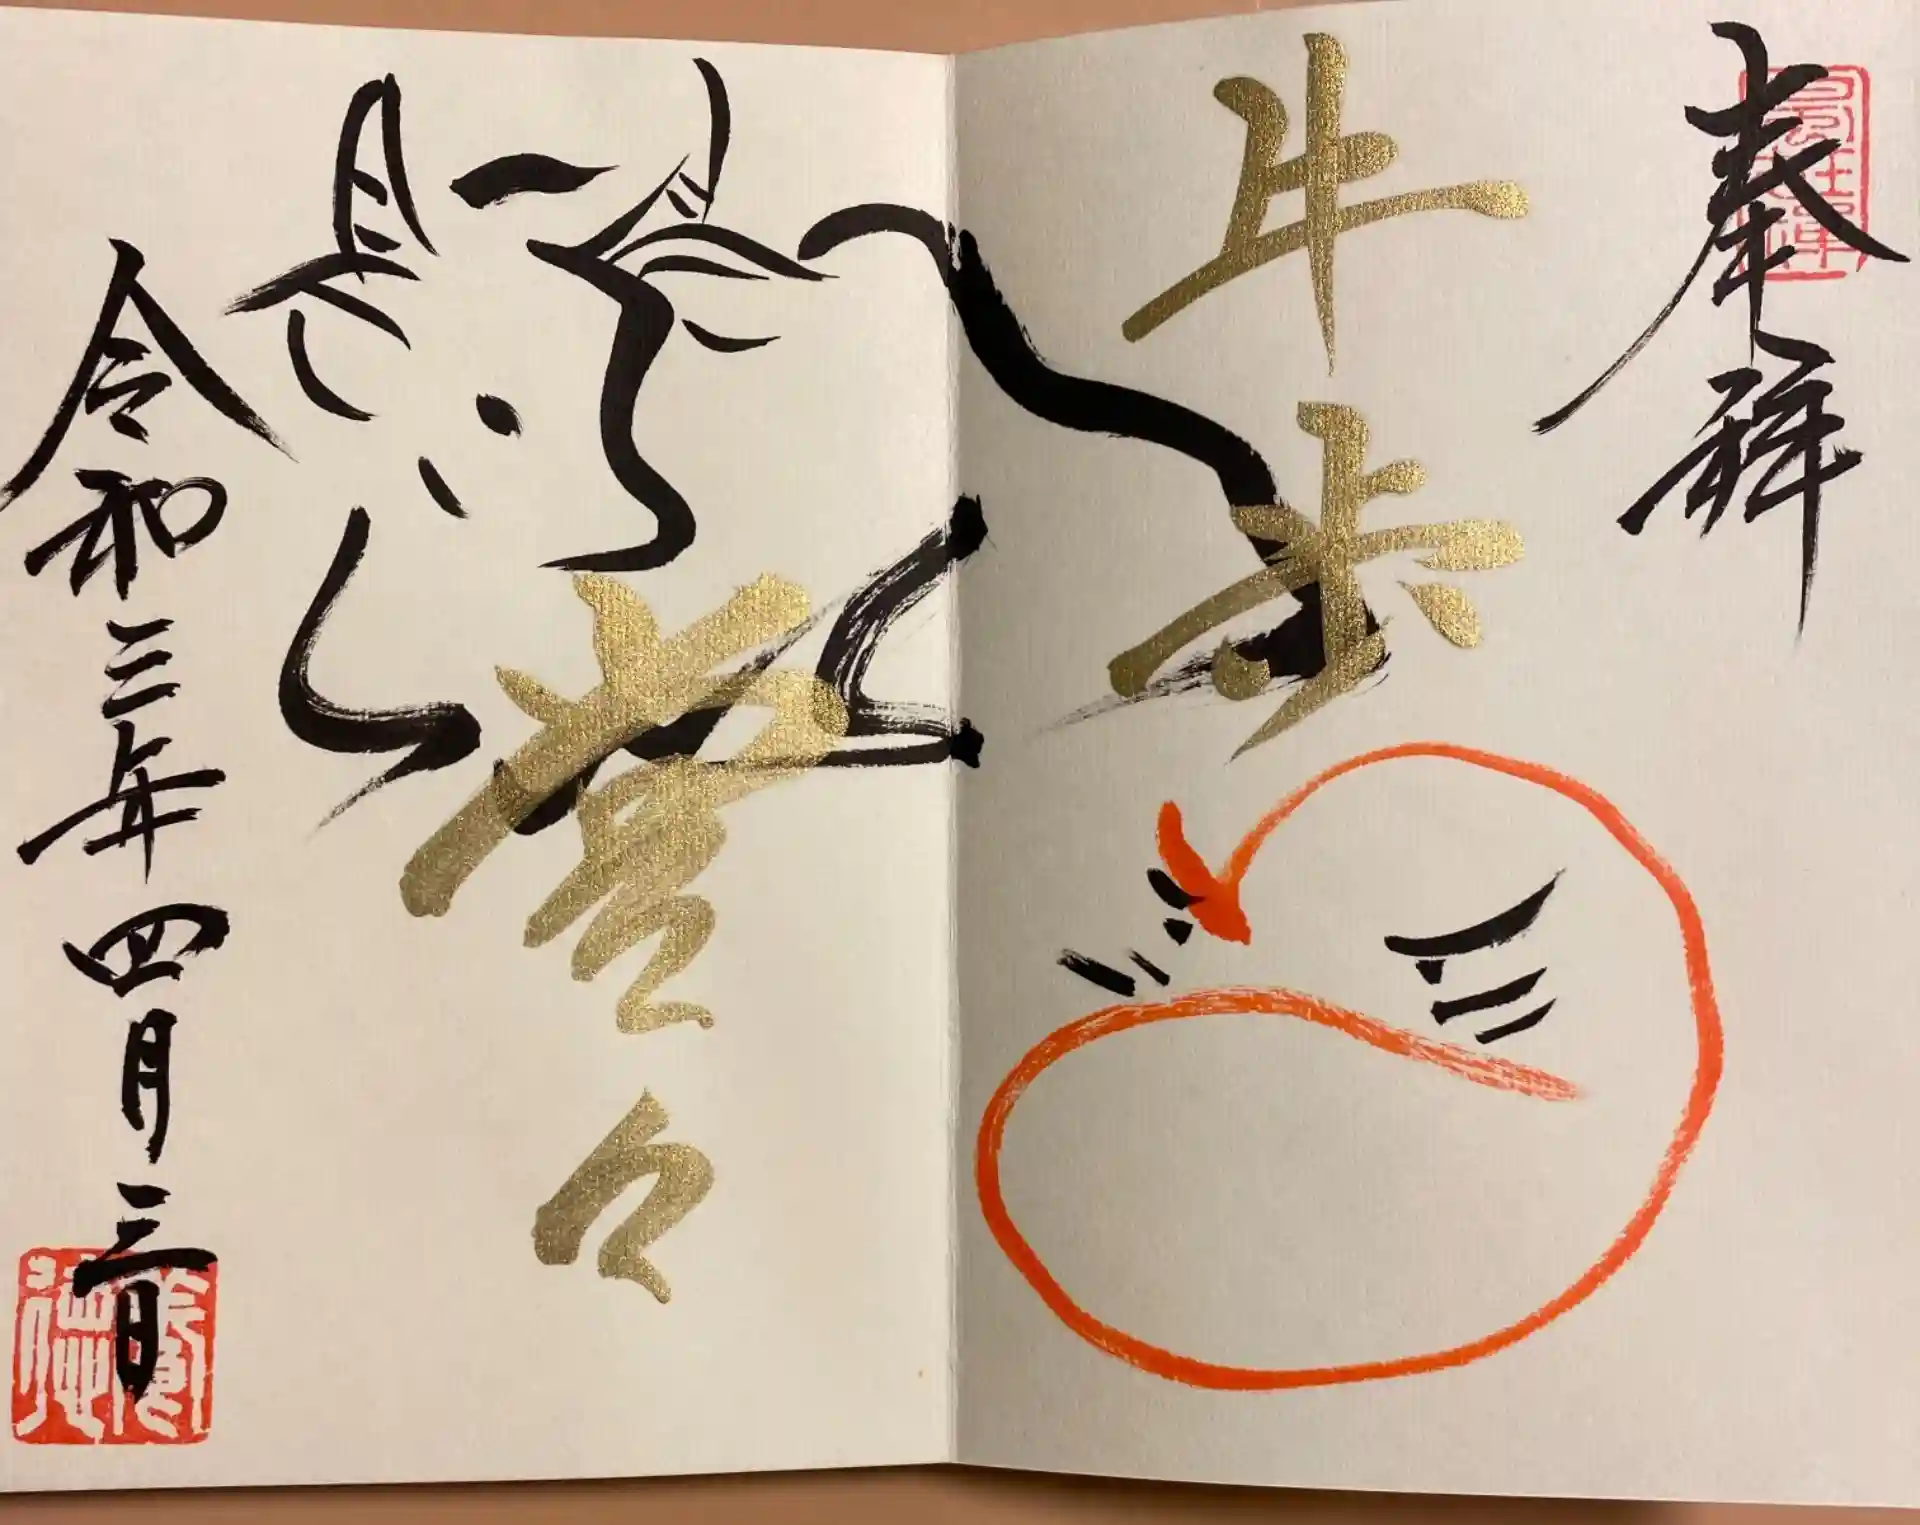 奉拝
牛歩
営々
令和三年四月三日